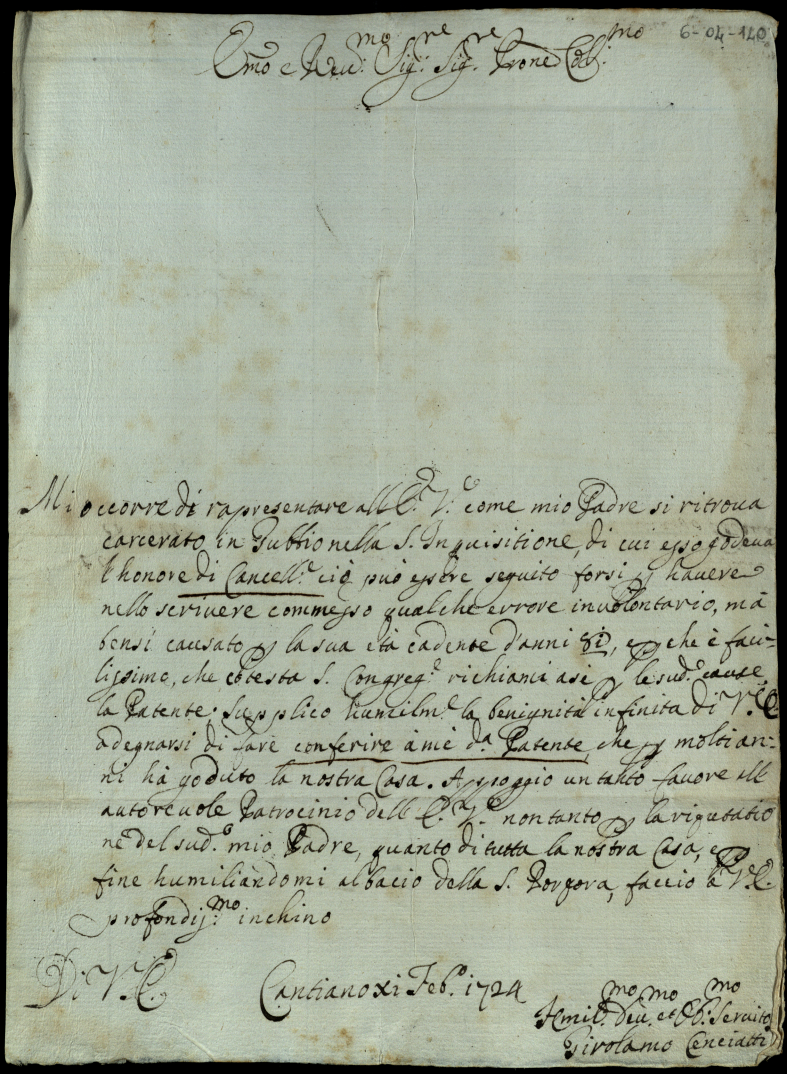 6-04-140
Emo e Reu.mo Sig.re Sig.re Prone Col.mo
Mi occorre di rapresentare all E.a V.a come mio Padre si ritroua
carcerato in Gubbio nella S. Inquisitione, di cui esso godeua
l honore di Cancell.e ciò può essere seguito forsi p hauere
nello scriuere commesso qualche errore inuolontario, mà
bensi causato p la sua età cadente d'anni 81, e p che è faci-
lissimo, che cotesta S. Congreg.e richiami a se p le sud.e cause
la Patente. Supplico humilm.e la benignità infinita di V.E.
a degnarsi di fare conferire à me d.a Patente, che p molti an-
ni hà goduto la nostra Casa. Appoggio un tanto fauore all
autoreuole Patrocinio dell E.a V.a non tanto p la riputatio
ne del sud.o mio Padre, quanto di tutta la nostra Casa, e p
fine humiliandomi al bacio della S. Porpora, faccio à V.E.
profondiss.mo inchino
Di V.E.
Cantiano xi Feb.o 1724
Hmil.mo Deu.mo et Ob.mo Seruito
Girolamo Cenciatti